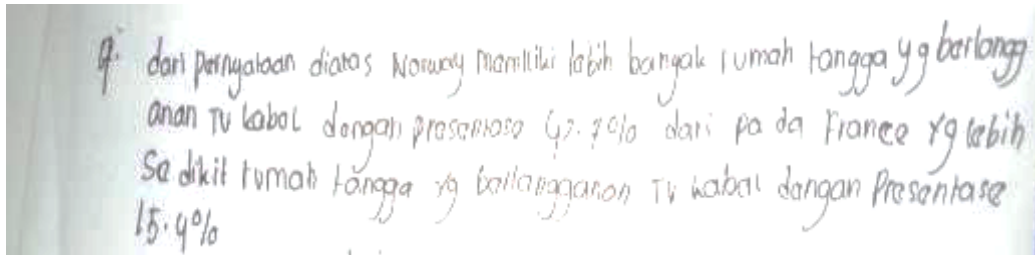 9. dari pernyataan diatas Norway memiliki lebih banyak rumah tangga yg berlangg
anan TV kabel dengan presentase 47.7% dari pada France yg lebih
Sedikit rumah tangga yg berlangganan TV kabel dengan Presentase
15.4%